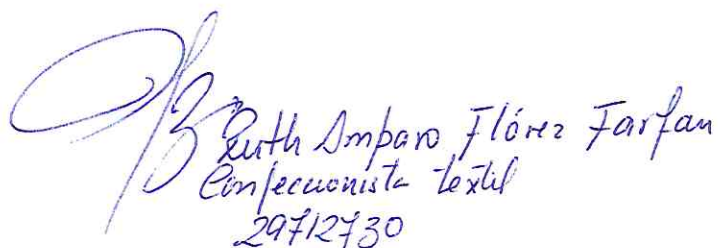 Ruth Amparo Flórez Farfan
Confeccionista textil
29712730